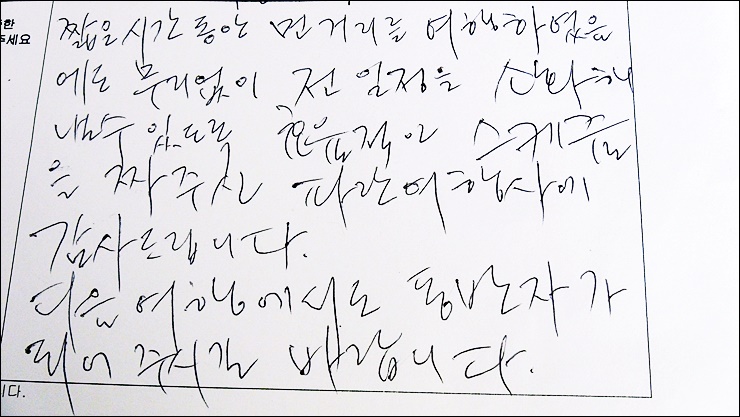 한
주세요
짧은시간 동안 먼거리를 여행하였음
에도 무리없이 전 일정을 소화해
낼수 있도록 효율적인 스케줄
을 짜주신 파란여행사에
감사드립니다.
다음 여행에서도 동반자가
되어 주시길 바랍니다.
니다.